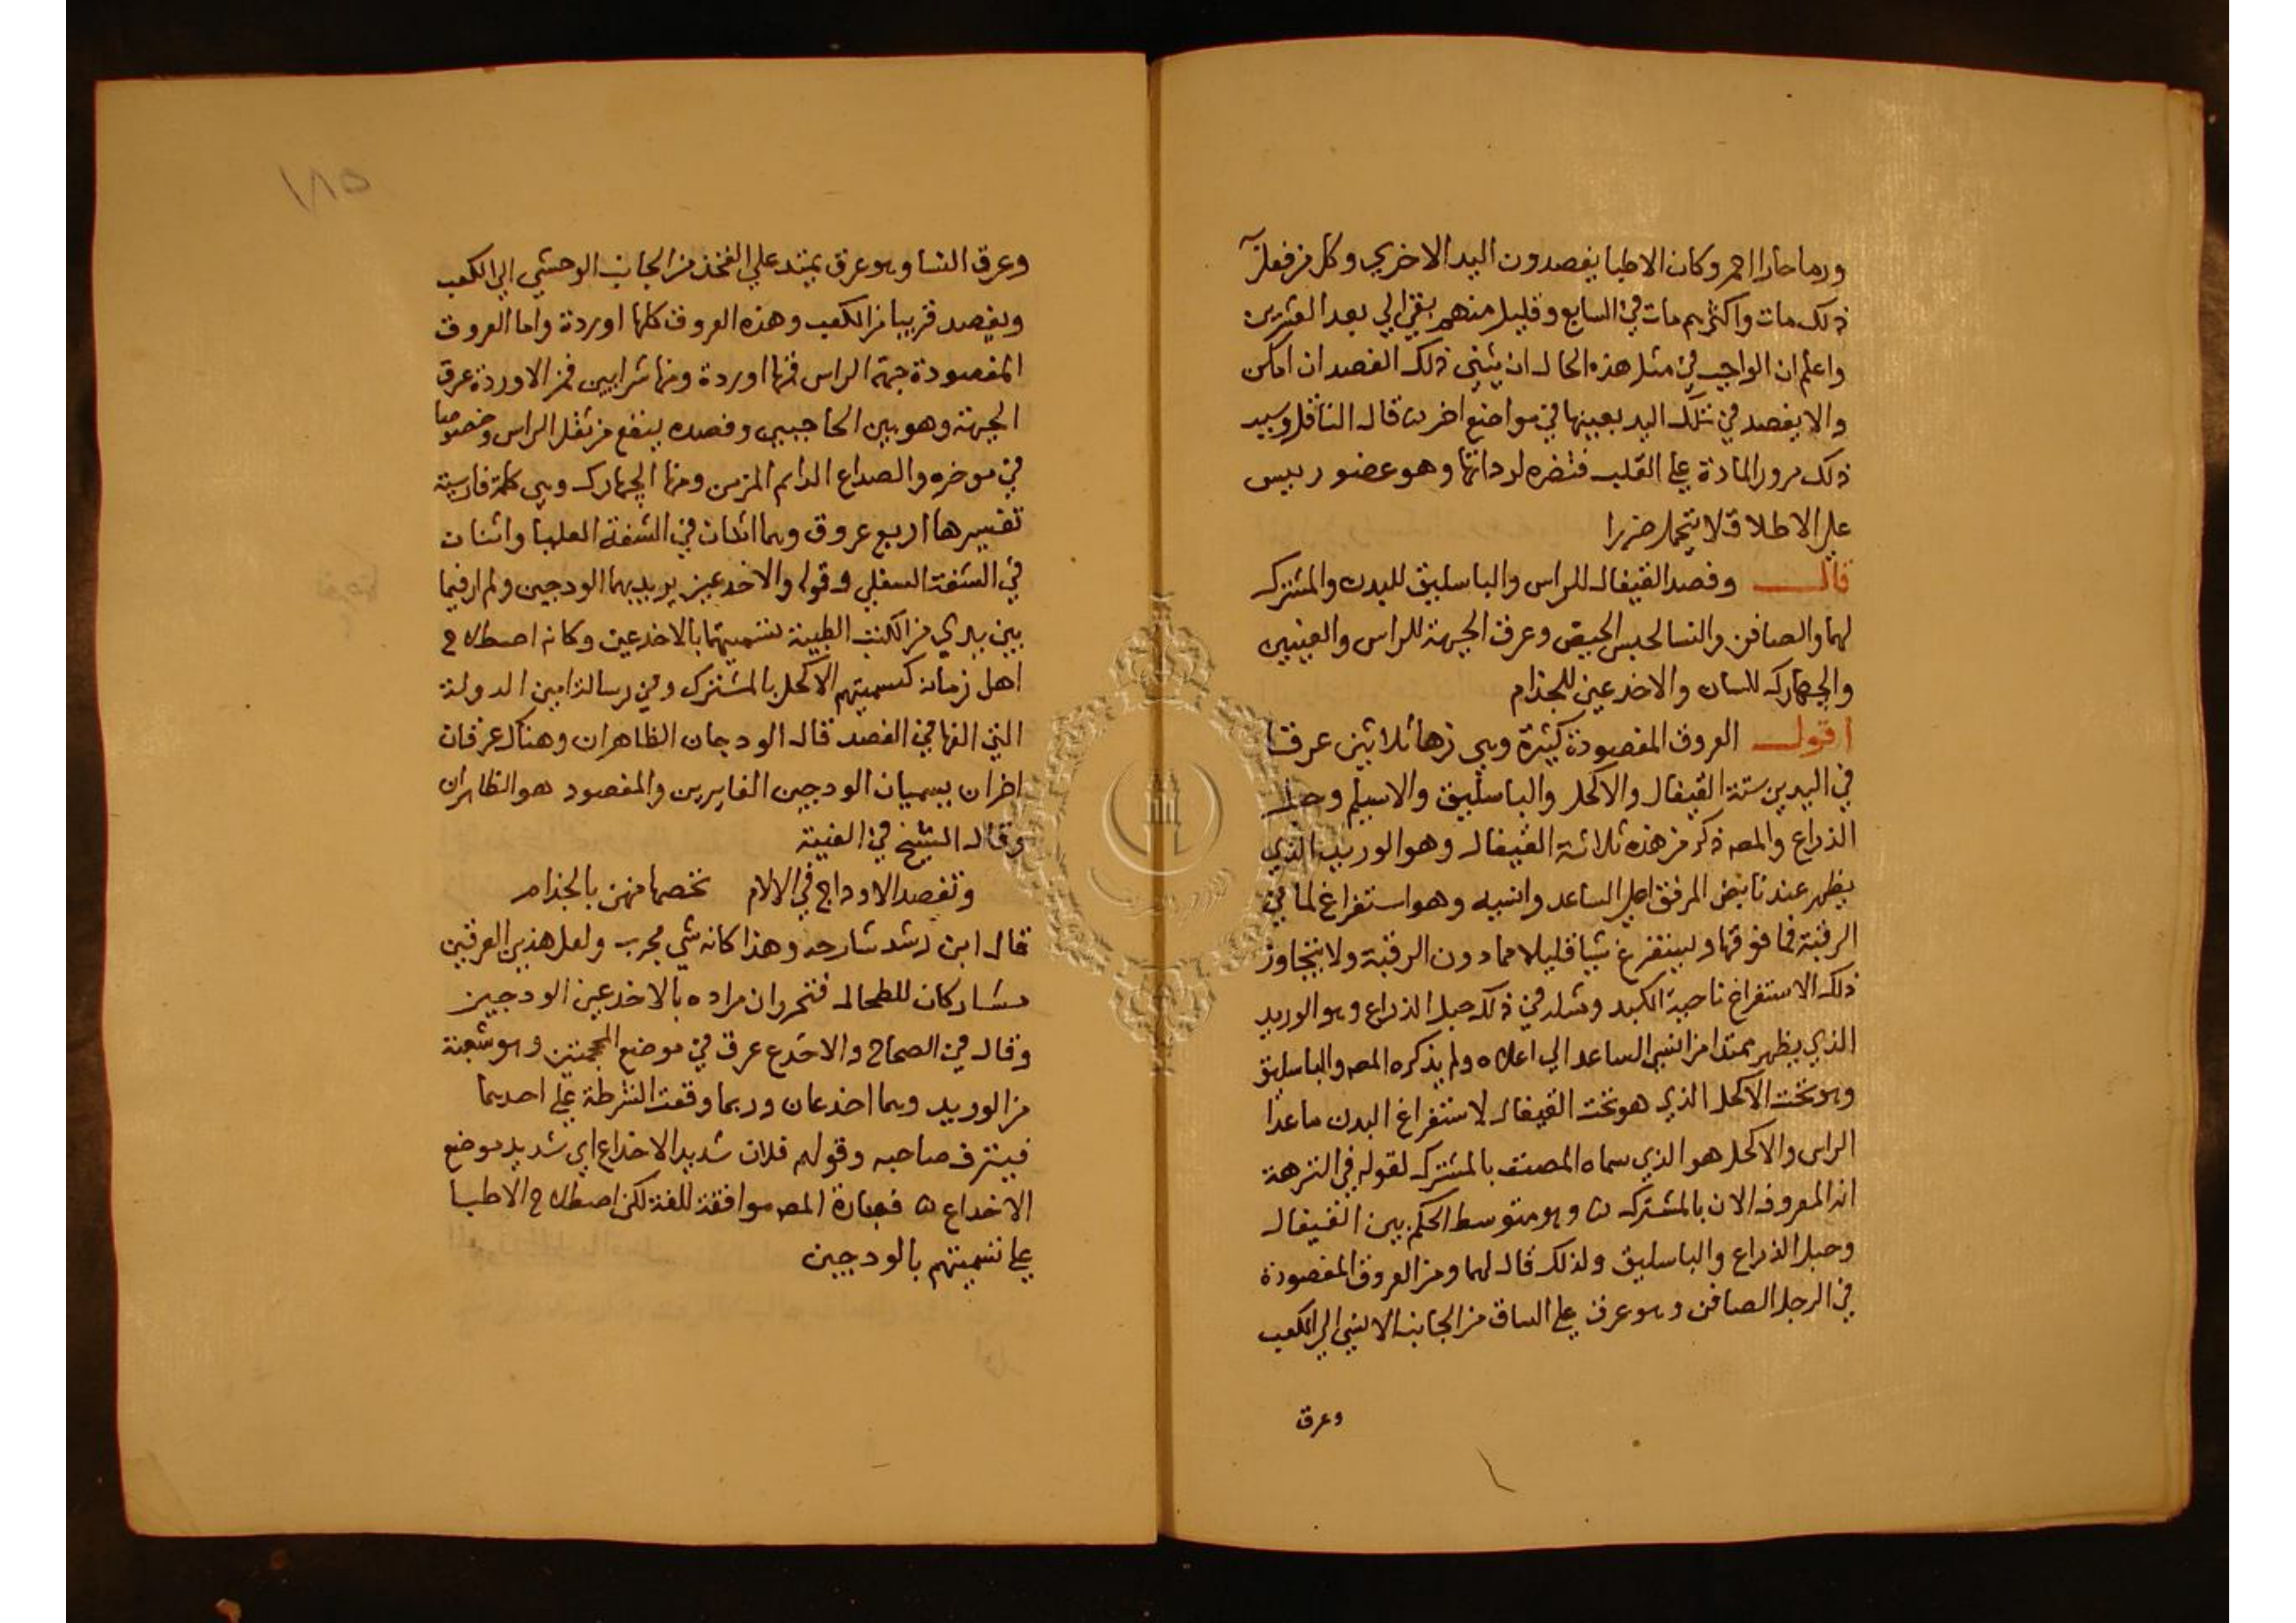 ورما حارا احمر وكان الاطبا يفصدون اليد الاخري وكل من فعل به
ذلك مات واكثرهم مات في السابع وقليل منهم بقي الي بعد العشرين
واعلم ان الواجب في مثل هذه الحال ان يثني ذلك الفصد ان امكن
والا يفصد في تلك اليد بعينها في مواضع اخر قال الناقل وسبب
ذلك مرور المادة علي القلب فتضره لرداتها وهو عضو رييس
علي الاطلاق لا يتحمل ضررا
قال وفصد القيفال للراس والباسليق للبدن والمشترك
لهما والصافن والنسا لحبس الحيض وعرق الجبهة للراس والعينين
والجهارك للسان والاخدعين للجذام
اقول العروق المفصودة كثيرة وهي زها ثلاثين عرقا
في اليدين ستة القيفال والاكحل والباسليق والاسيلم وحبل
الذراع والمصه ذكر من هذه ثلاثة القيفال وهو الوريد الذي
يظهر عند نابض المرفق اعلي الساعد وانسيه وهو استفراغ لما في
الرقبة فما فوقها ويستفرغ شيا قليلا مما دون الرقبة ولا يتجاوز
ذلك الاستفراغ ناحية الكبد ومثله في ذلك حبل الذراع وهو الوريد
الذي يظهر ممتدا من انسي الساعد الي اعلاه ولم يذكره المصه والباسليق
وهو تحت الاكحل الذي هو تحت القيفال لاستفراغ البدن ماعدا
الراس والاكحل هو الذي سماه المصنف بالمشترك لقوله في النزهة
انه المعروف الان بالمشترك وهو متوسط الحكم بين القيفال
وحبل الذراع والباسليق ولذلك قال لهما ومن العروق المفصودة
في الرجل الصافن وهو عرق علي الساق من الجانب الانسي الي الكعب
وعرق
١٨٥
وعرق النسا وهو عرق يمتد علي الفخذ من الجانب الوحشي الي الكعب
ويفصد قريبا من الكعب وهذه العروق كلها اوردة واما العروق
المفصودة جهة الراس فمنها اوردة ومنها شرايين فمن الاوردة عرق
الجبهة وهو بين الحاجبين وفصده ينفع من ثقل الراس وخصوصا
في موخره والصداع الدايم المزمن ومنها الجهارك وهي كلمة فارسية
تفسيرها اربع عروق وهما اثنان في الشفة العليا واثنان
في الشفة السفلي وقوله والاخدعين يريد بهما الودجين ولم ار فيما
بين يدي من الكتب الطبية تسميتهما بالاخدعين وكانه اصطلاح
اهل زمانه كتسميتهم الاكحل بالمشترك وفي رسالة امين الدولة
التي الفها في الفصد قال الودجان الظاهران وهناك عرقان
اخران يسميان الودجين الغايرين والمفصود هو الظاهران
وقال الشيخ في الفينة
وتفصد الاوداج في الالام نخصها منهن بالجذام
قال ابن رشد شارحه وهذا كانه شي مجرب ولعل هذين العرقين
مشاركان للطحال فتحرر ان مراده بالاخدعين الودجين
وقال في الصحاح والاخدع عرق في موضع المحجمتين وهو شعبة
من الوريد وهما اخدعان وربما وقعت الشرطة علي احدهما
فينزف صاحبه وقولهم فلان شديد الاخداع اي شديد موضع
الاخداع فعبارة المصه موافقة للغة لكن اصطلاح الاطبا
علي تسميتهم بالودجين